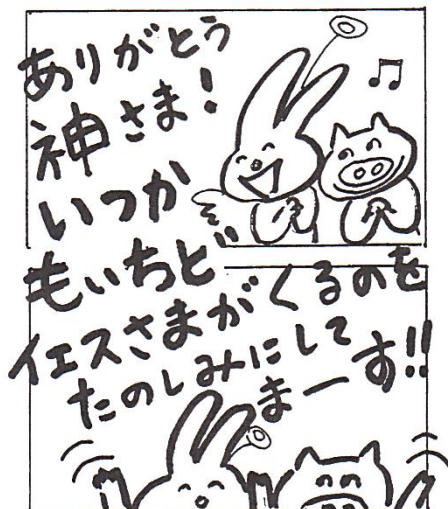 ありがとう
神さま!
いつか
もいちど
イエスさまがくるのを
たのしみにして
まーす!!